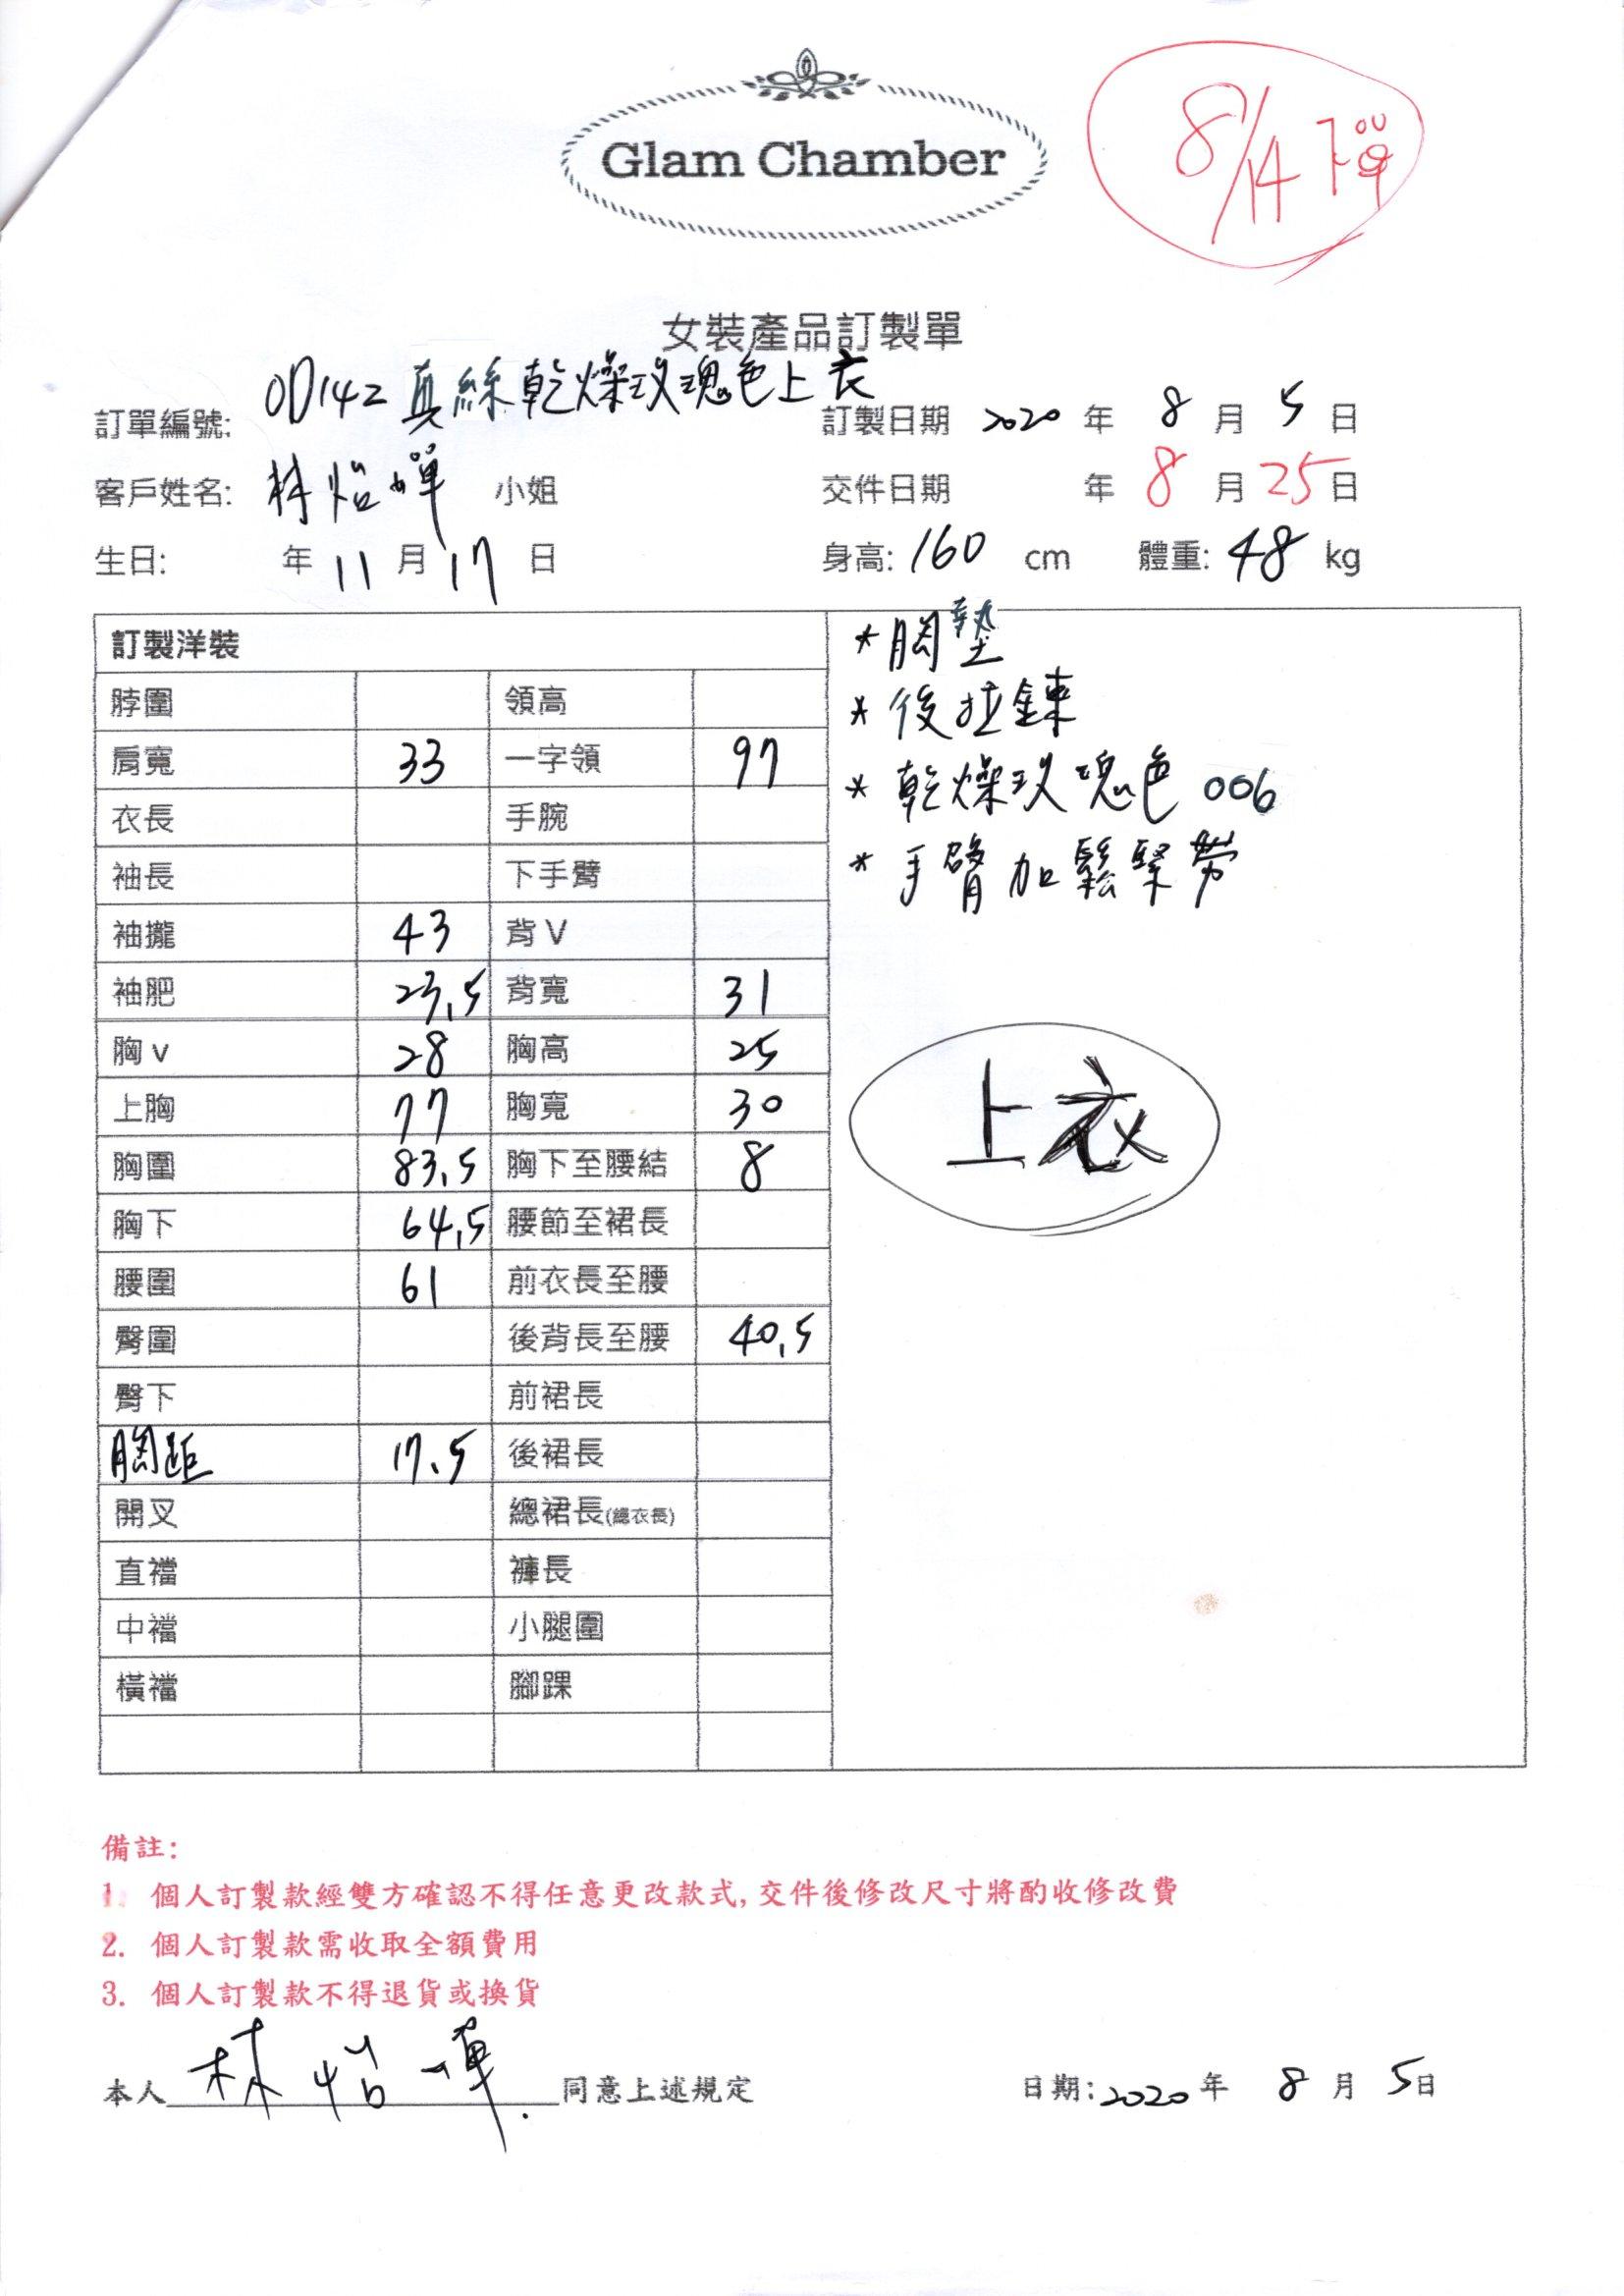 Glam Chamber
8/14 下單
女裝產品訂製單
訂單編號: OD142 真絲乾燥玫瑰色上衣
訂製日期 2020 年 8 月 5 日
客戶姓名: 林怡嬋 小姐
交件日期 年 8 月 25 日
生日: 年 11 月 17 日
身高: 160 cm 體重: 48 kg
訂製洋裝
脖圍 領高
肩寬 33 一字領 97
衣長 手腕
袖長 下手臂
袖攏 43 背 V
袖肥 23.5 背寬 31
胸 v 28 胸高 25
上胸 77 胸寬 30
胸圍 83.5 胸下至腰結 8
胸下 64.5 腰節至裙長
腰圍 61 前衣長至腰
臀圍 後背長至腰 40.5
臀下 前裙長
胸距 17.5 後裙長
開叉 總裙長(總衣長)
直襠 褲長
中襠 小腿圍
橫襠 腳踝
* 胸墊
* 後拉鍊
* 乾燥玫瑰色 006
* 手臂加鬆緊帶
上衣
備註:
1. 個人訂製款經雙方確認不得任意更改款式, 交件後修改尺寸將酌收修改費
2. 個人訂製款需收取全額費用
3. 個人訂製款不得退貨或換貨
本人 林怡嬋 同意上述規定
日期: 2020 年 8 月 5 日